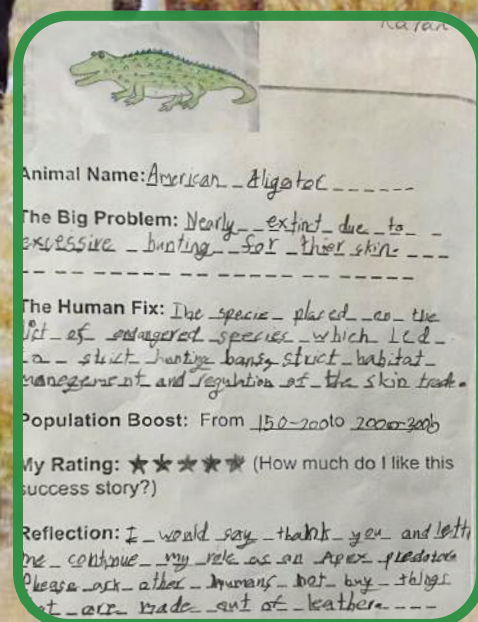 Karan
Animal Name: American Aligator
The Big Problem: Nearly extinct due to
excessive hunting for thier skin
The Human Fix: The specie placed on the
list of endangered species which led
to strict hunting bans, struct habitat
manegement and regulation of the skin trade.
Population Boost: From 150-200 to
My Rating: ★★★★★ (How much do I like this
success story?)
Reflection: I would say thank you and lett
me continue my role as an Apex predator
Please ask other humans not buy things
that are made out of leather.